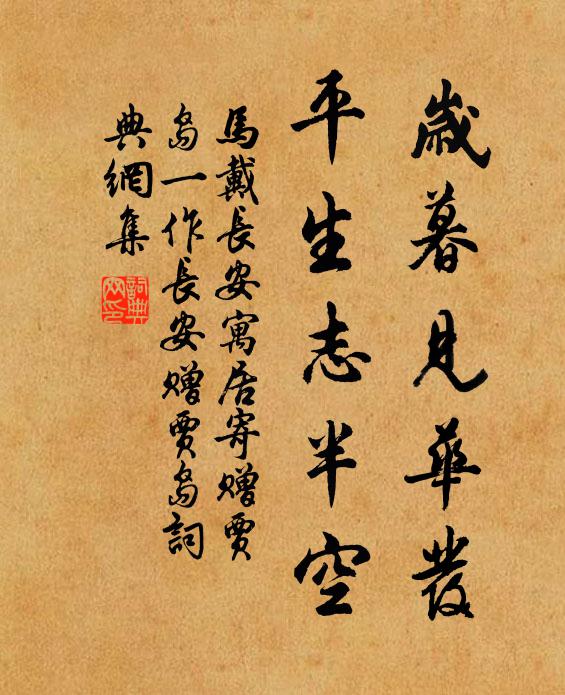 歲暮見華發
平生志半空
馬戴長安寓居寄贈賈
島一作長安贈賈島詞
典網集
詞典
网印